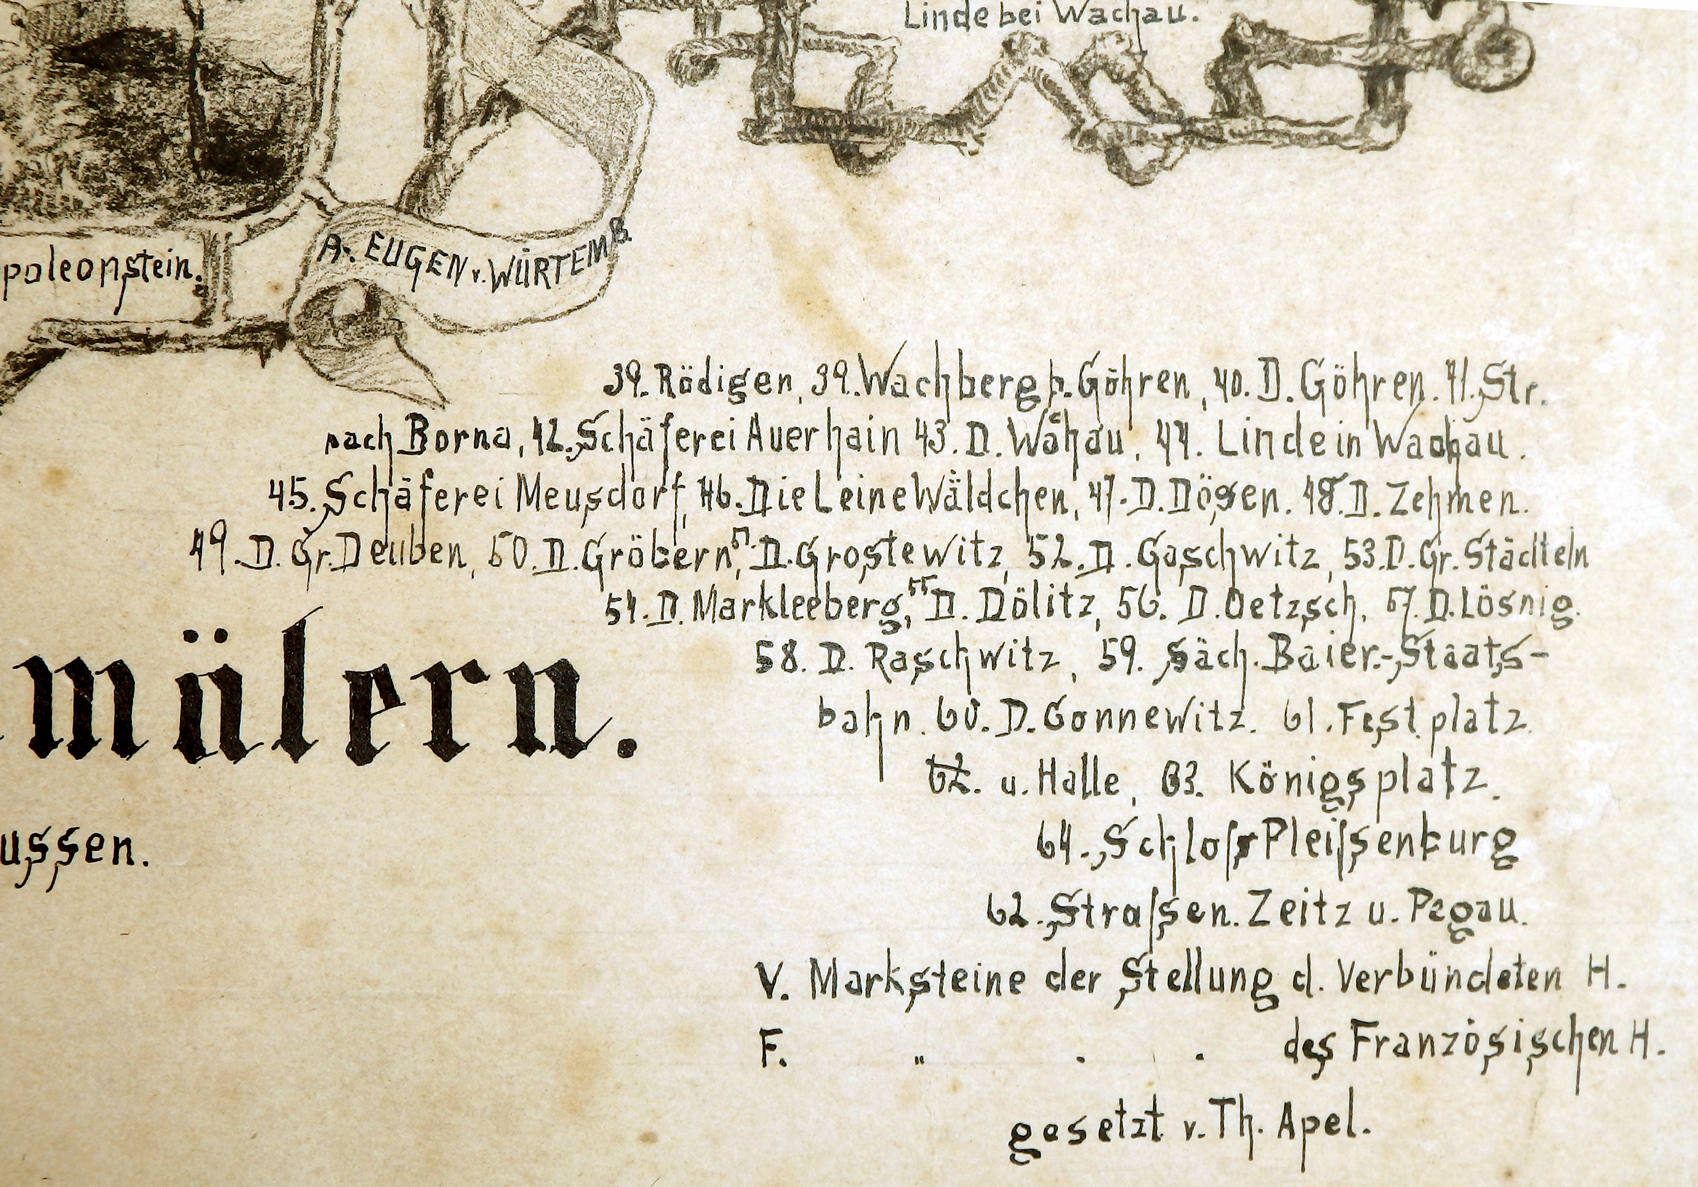 Linde bei Wachau.
poleonstein.
A. EUGEN v. WÜRTEMB.
39. Rödigen, 39. Wachberg b. Göhren, 40. D. Göhren. 41. Str.
nach Borna, 42. Schäferei Auerhain 43. D. Wachau, 44. Linde in Wachau.
45. Schäferei Meusdorf, 46. Die Leine Wäldchen, 47. D. Dösen. 48. D. Zehmen.
49. D. Gr. Deuben, 50. D. Gröbern, 51. D. Grostewitz, 52. D. Gaschwitz, 53. D. Gr. Städteln
54. D. Markleeberg, 55 D. Dölitz, 56. D. Oetzsch, 57. D. Lösnig.
58. D. Raschwitz, 59. Säch. Baier.-Staats-
bahn. 60. D. Connewitz. 61. Festplatz
62. u. Halle, 63. Königsplatz.
64. Schloss Pleissenburg
62. Strassen. Zeitz u. Pegau.
mälern.
ussen.
V. Marksteine der Stellung d. Verbündeten H.
F. " . . des Französischen H.
gesetzt v. Th. Apel.